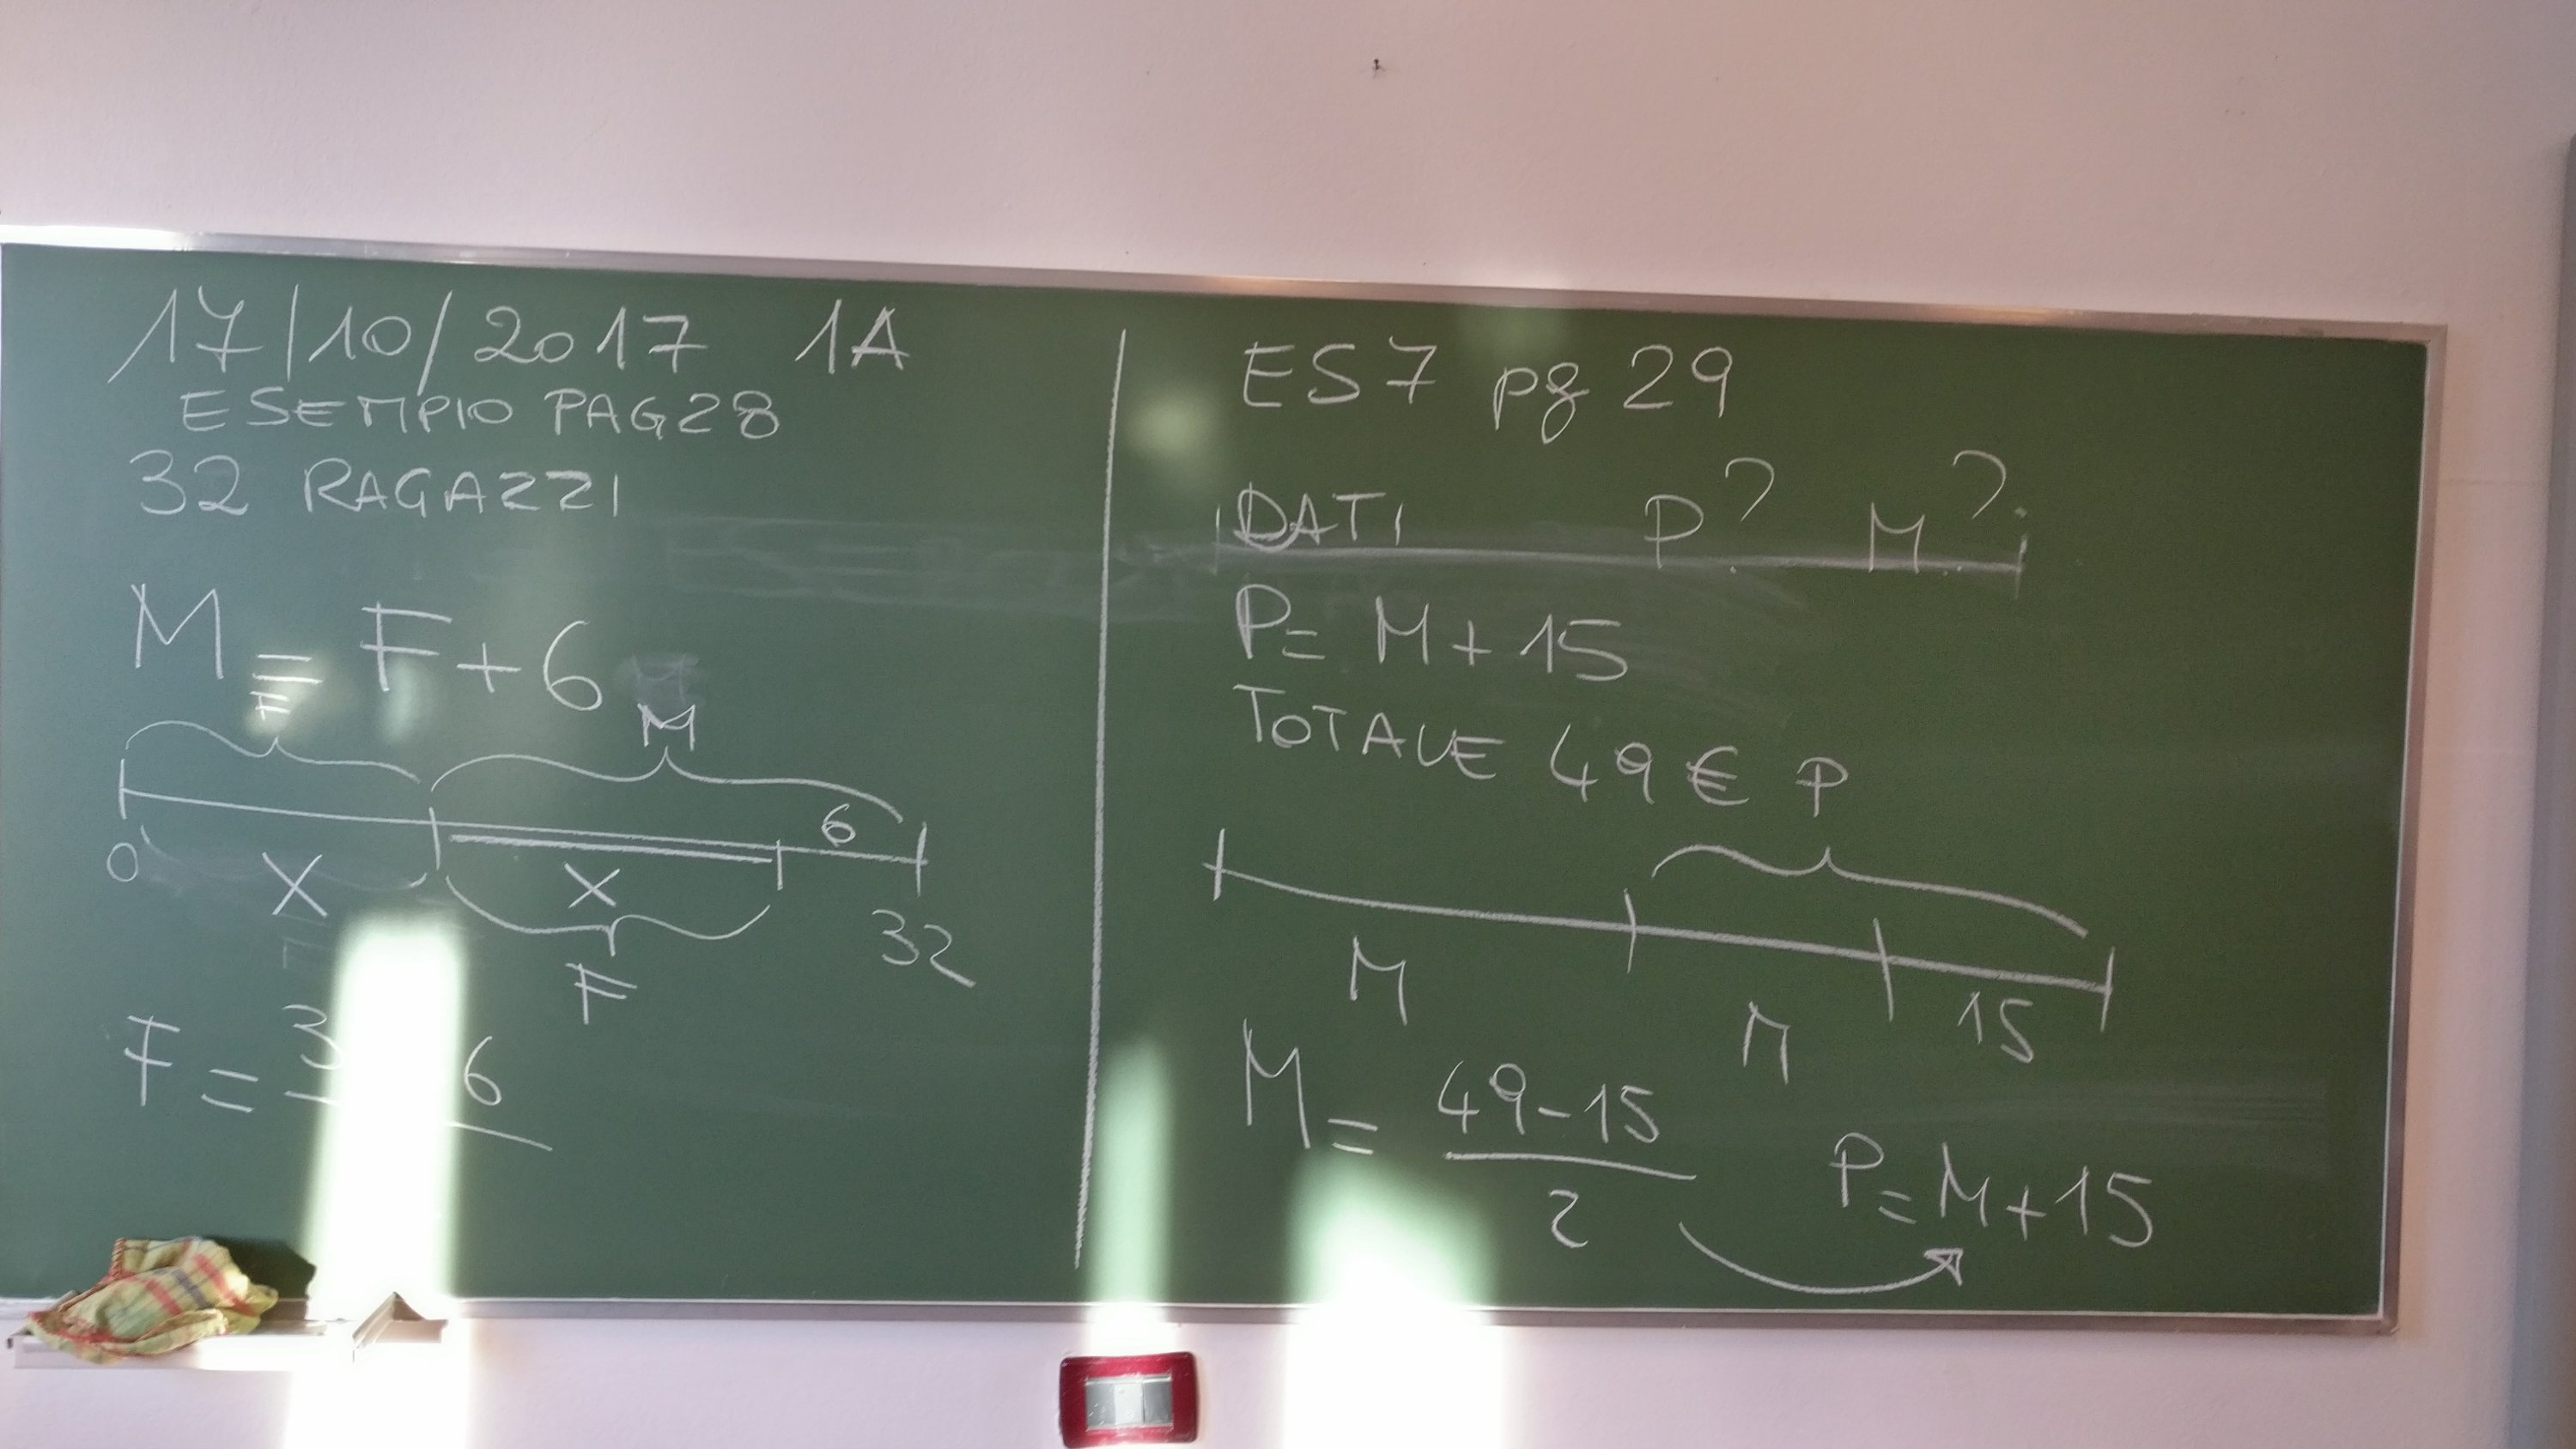 17/10/2017 1A
ESEMPIO PAG28
32 RAGAZZI
M = F + 6
F
M
6
0
X
X
32
F
F = 3 6
ES7 pg 29
DATI P? M?
P = M + 15
TOTALE 49 € P
M
M
15
M = 49-15
2
P = M + 15